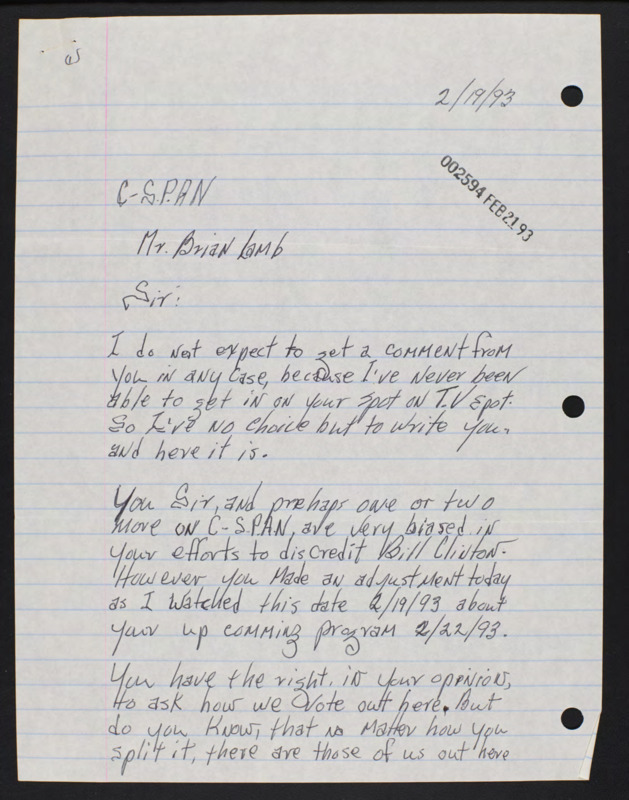 2/19/93
002594 FEB 21 93
C-S.P.A.N
Mr. Brian Lamb
Sir:
I do not expect to get a comment from
you in any case, because I've never been
able to get in on your spot on T.V spot.
So I've no choice but to write you,
and here it is.
You Sir, and prehaps one or two
more on C-S.P.A.N, are very biased in
your efforts to discredit Bill Clinton.
However you made an adjustment today
as I watched this date 2/19/93 about
your up comming program 2/22/93.
You have the right, in your opinion,
to ask how we vote out here. But
do you know, that no matter how you
split it, there are those of us out here